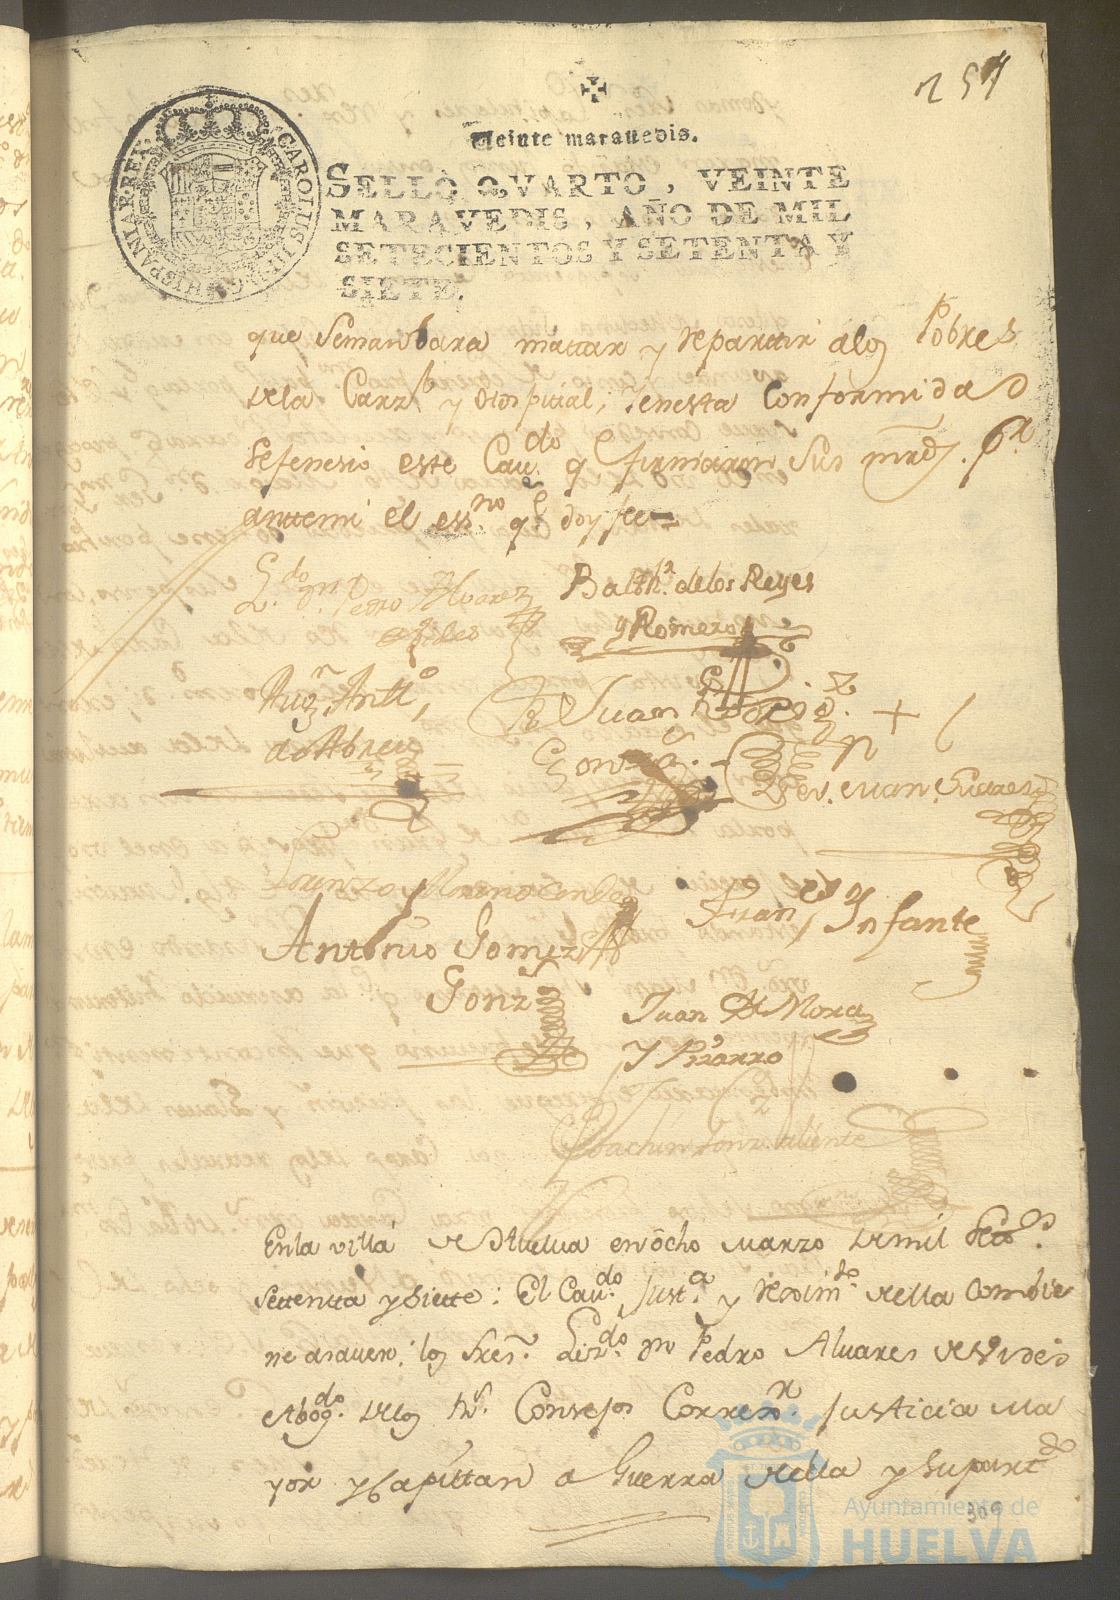 257
Veinte maravedis.
SELLO QVARTO, VEINTE
MARAVEDIS, AÑO DE MIL
SETECIENTOS Y SETENTA Y
SIETE.
CAROLUS III D G HISPANIAR REX
que Semandara mattar y repartir alos Pobres
dela Carzl y Hospittal; Y enesta Conformidad
Sefenesio este Cavdo q firmaron Sus mrds. Pr
anttemi el essno qe doy fe =
Lzdo Dn Pedro Alvarez
Balthr. delos Reyes
y Romero
Augn Antto,
de Abreu
Juan Rodrigz.
Gonzs.
+
Xer. Juan Suares
Lorenzo
Antonio Gomez
Gonz
Fran Infante
Juan de Mora
Y Pizarro
Joachin Gonz. Valiente
Enla villa de Huelva en ôcho Marzo demil Setecos.
Settenta ySiette: El Cavdo. Justa. y reximto. della Combie
ne asaver; los Sres. Lizdo. Dn Pedro Alvares de
Abogdo. delos Rs. Consejos Correxr. Justicia Ma
yor y Capittan a Guerra della y Su partdo
309
Ayuntamiento de
HUELVA